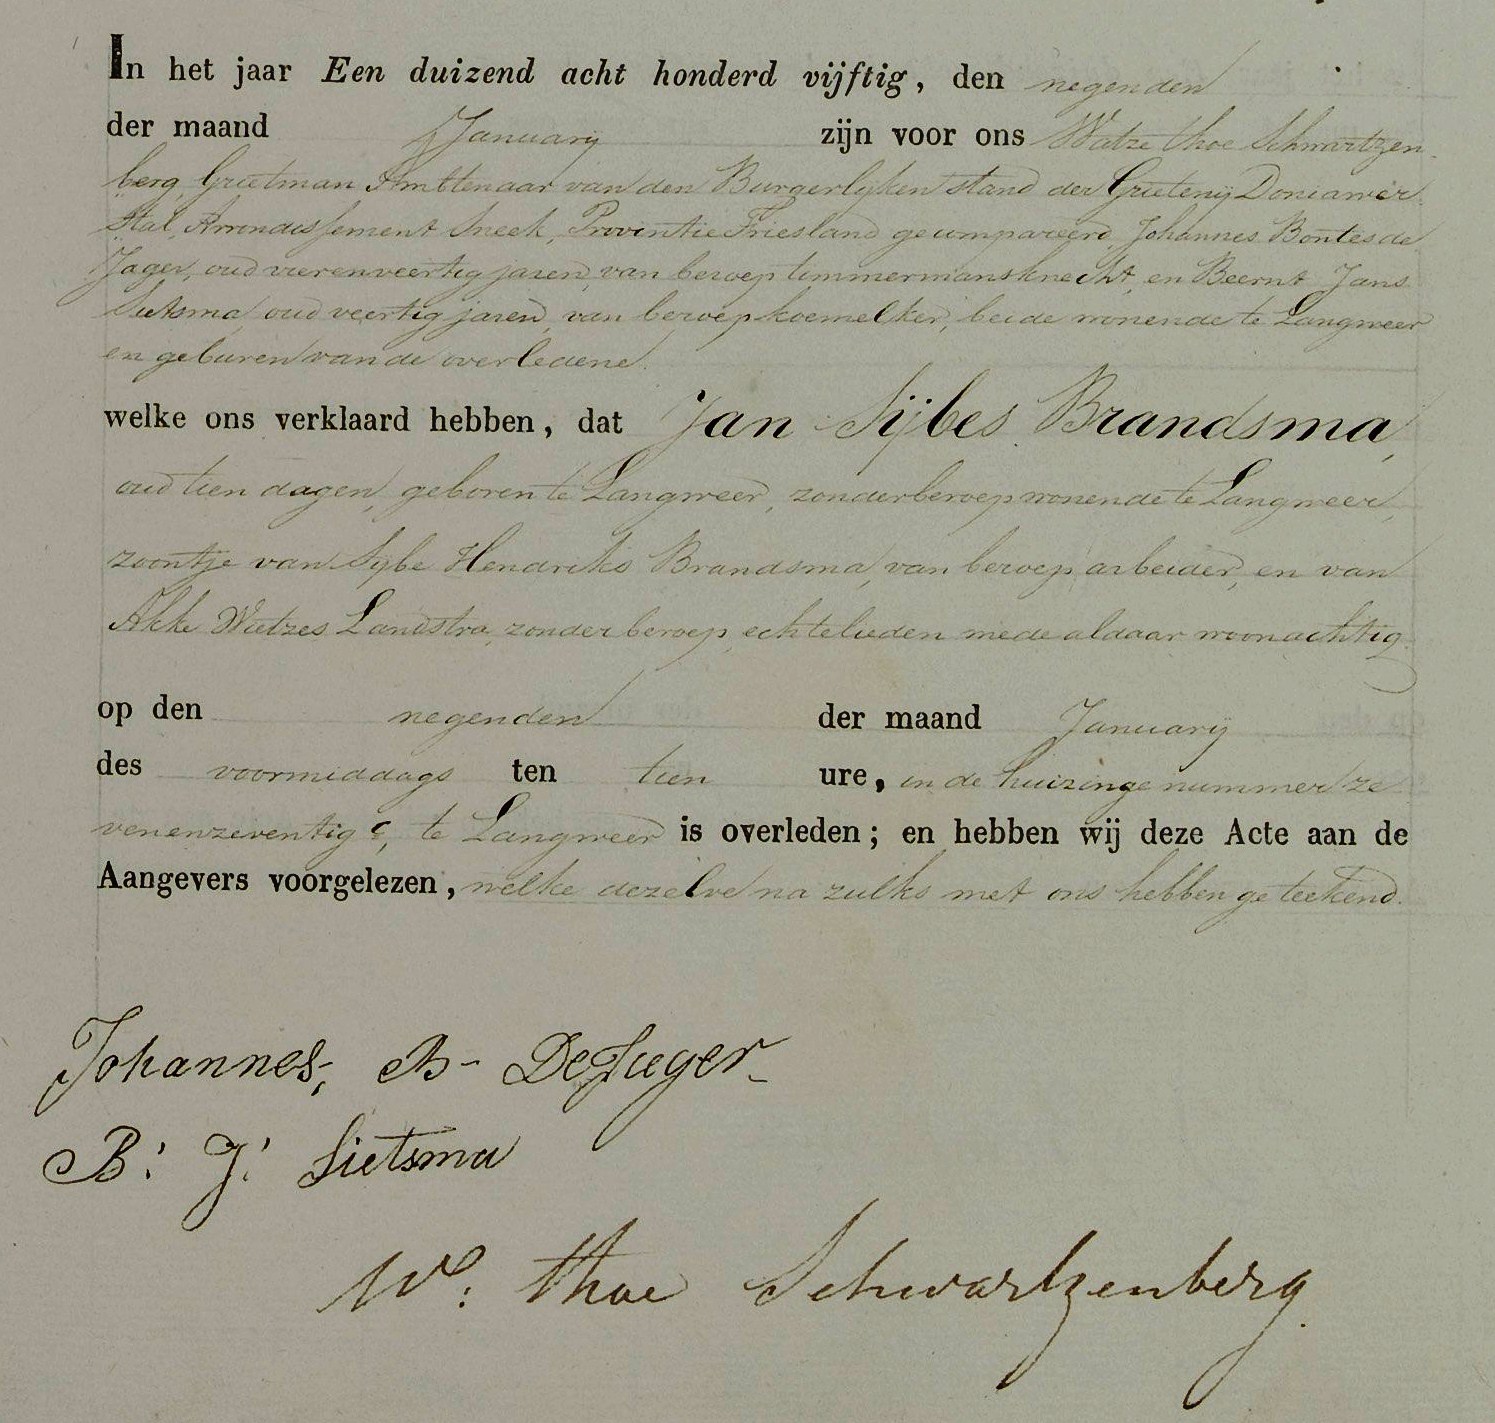 In het jaar Een duizend acht honderd vijftig, den negenden
der maand Januarij zijn voor ons Watze thoe Schwartzen
berg, Grietman Ambtenaar van den Burgerlijken stand der Grietenij Doniawer
stal, Arrondissement Sneek, Provintie Friesland gecompareerd, Johannes Bontes de
Jager, oud vierenveertig jaren, van beroep timmermansknecht, en Beernt Jans
Sietsma, oud veertig jaren, van beroep koemelker, beide wonende te Langweer
en geburen van de overledene.
welke ons verklaard hebben, dat Jan Sijbes Brandsma,
oud tien dagen, geboren te Langweer, zonder beroep wonende te Langweer,
zoontje van Sijbe Hendriks Brandsma, van beroep arbeider, en van
Akke Watzes Landstra, zonder beroep, echtelieden mede aldaar woonachtig.
op den negenden der maand Januarij
des voormiddags ten tien ure, in de huizinge nummer ze
venenzeventig c, te Langweer is overleden; en hebben wij deze Acte aan de
Aangevers voorgelezen, welke dezelve na zulks met ons hebben geteekend.
Johannes, B- De Jager
B: J: Sietsma
W: thoe Schwartzenberg.